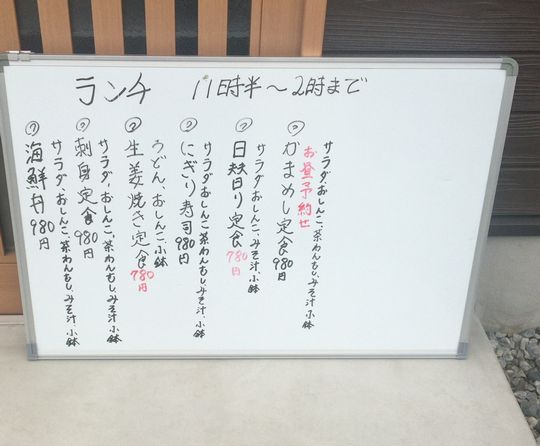 ランチ 11時半～2時まで
㋐かまめし定食980円
お昼予約せ
サラダおしんこ、茶わんむし、みそ汁、小鉢
㋐日替り定食780円
サラダおしんこ、みそ汁、小鉢
㋐にぎり寿司980円
サラダおしんこ茶わんむし、みそ汁小鉢
㋐生姜焼き定食780円
うどん、おしんこ、小鉢
㋐刺身定食980円
サラダ、おしんこ、茶わんむし、みそ汁、小鉢
㋐海鮮丼980円
サラダ、おしんこ、茶わんむし、みそ汁、小鉢